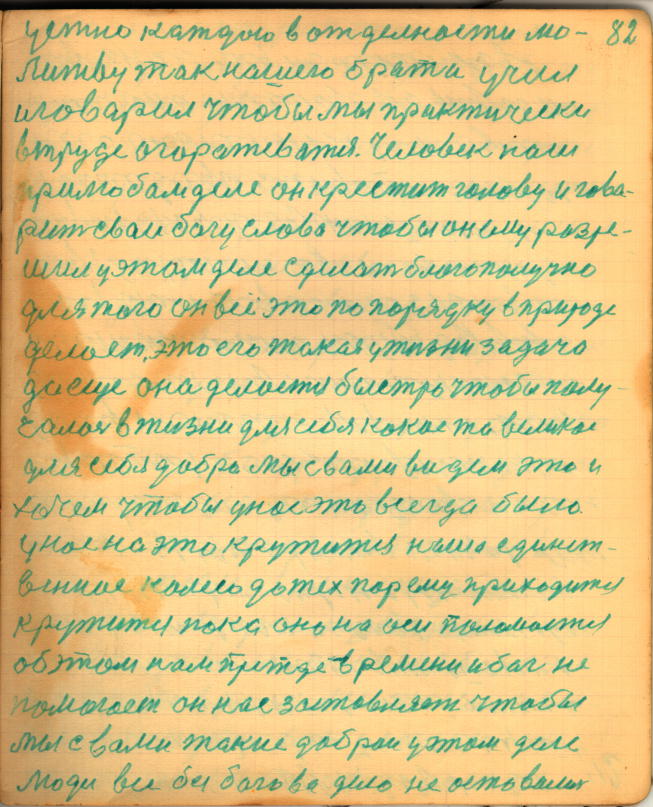 устно каждого вотделности мо- 82
литву так нашего брата учил
иговарил чтобы мы практически
втруде огораживатся. Человек наш
прилюбамделе он крестит голову и гова-
рит сваи богу слова чтобы он ему разре-
шил уэтом деле сделат благополучно
для того он всё это по порядку в природе
делает, это его такая ужизни задача
да еще она делается быстро чтобы полу-
чалось в жизни для себя какое та великое
для себя добро мы свами видем это и
хочем чтобы унас это всегда было.
унас на это крутится наша единст-
венное колесо до тех пор ему приходится
крутится пока оно на оси поломается
об этом нам прежде времени и бог не
помогает он нас заставляет чтобы
мы свами такие добраи уэтом деле
люди все без богова дело не оставалис